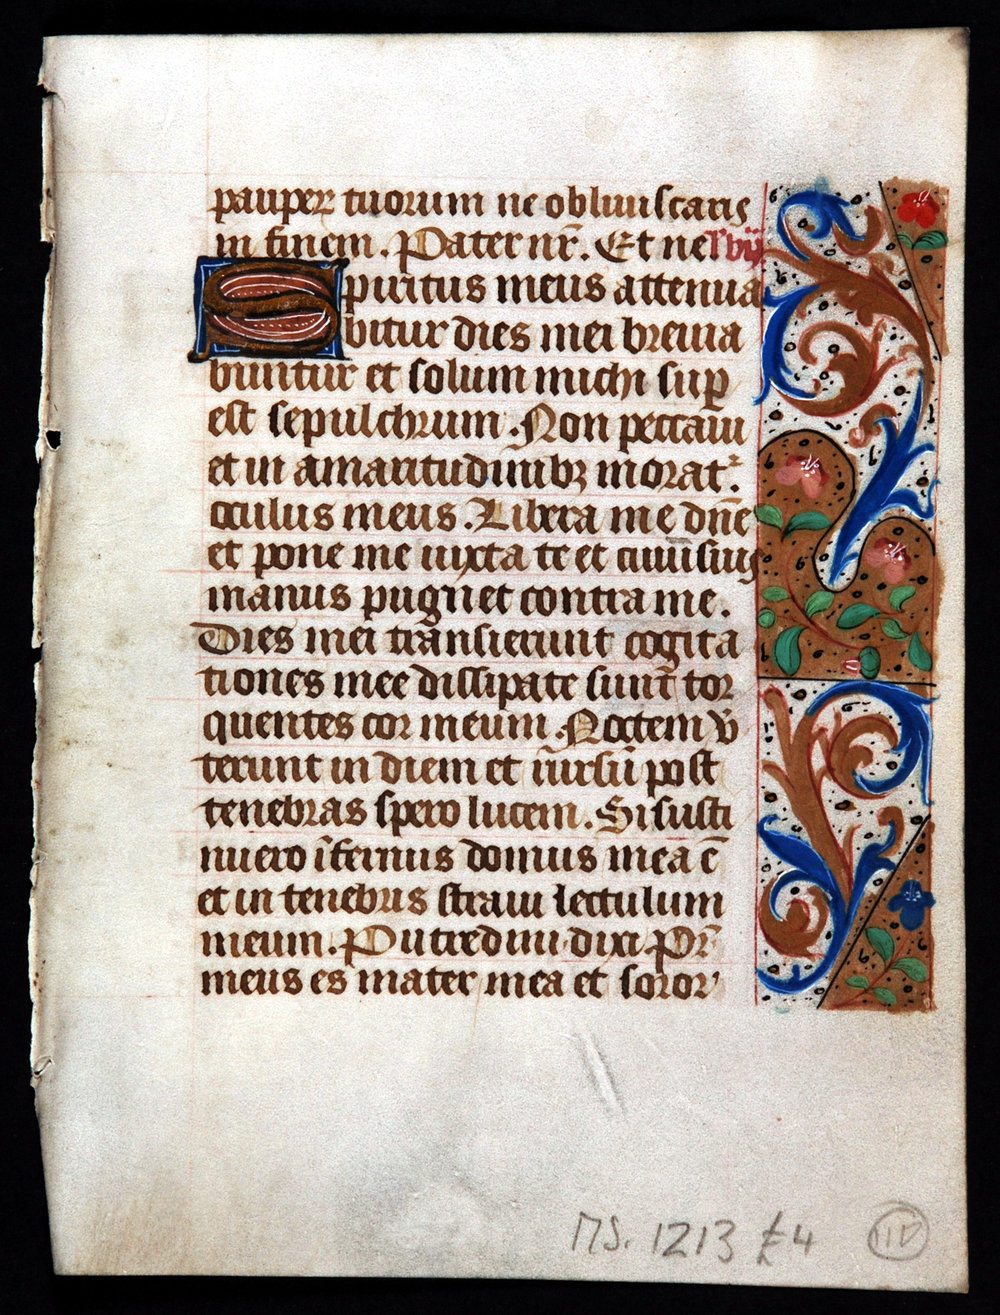 pauper tuorum ne obliuiscaris
in finem. Pater nr̄. Et ne l' vij
Spiritus meus attenua
bitur dies mei breuia
buntur et solum michi sup̄
est sepulchrum. Non peccaui
et in amaritudinibꝫ morat᷑.
oculus meus. Libera me dn̄e
et pone me iuxta te et cuiusuis
manus pugnet contra me.
Dies mei transierunt cogita
tiones mee dissipate sunt̄ tor
quentes cor meum. Noctem v̄
terunt in diem et rūrsū post
tenebras spero lucem. Si susti
nuero īfernus domus mea ē
et in tenebris straui lectulum
meum. Putredini dixi Pr̄
meus es mater mea et soror
MS. 1213 £4